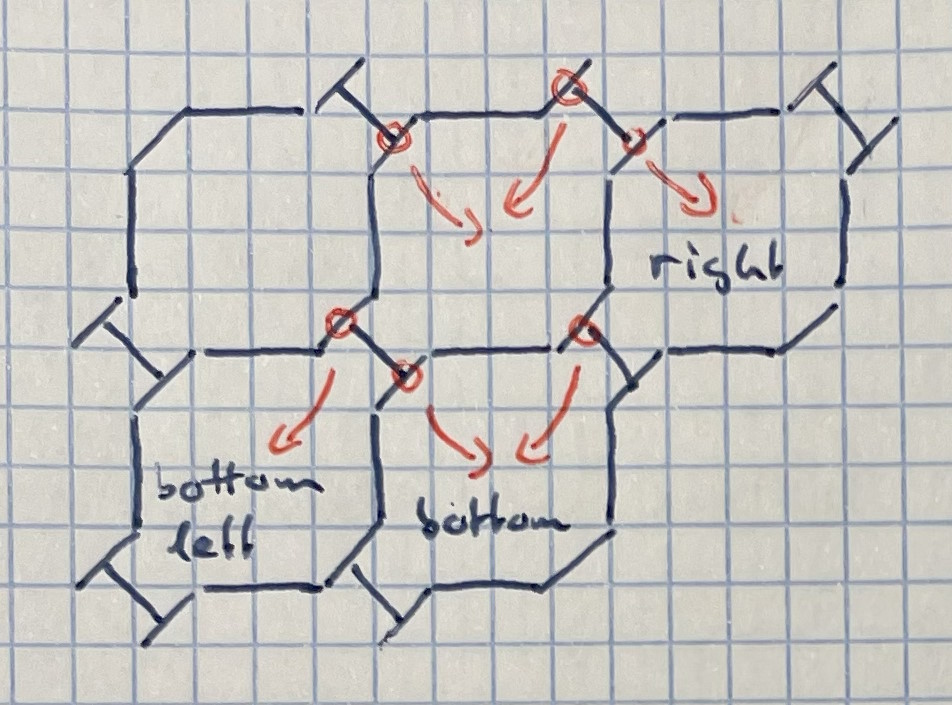 right
bottom
left
bottom